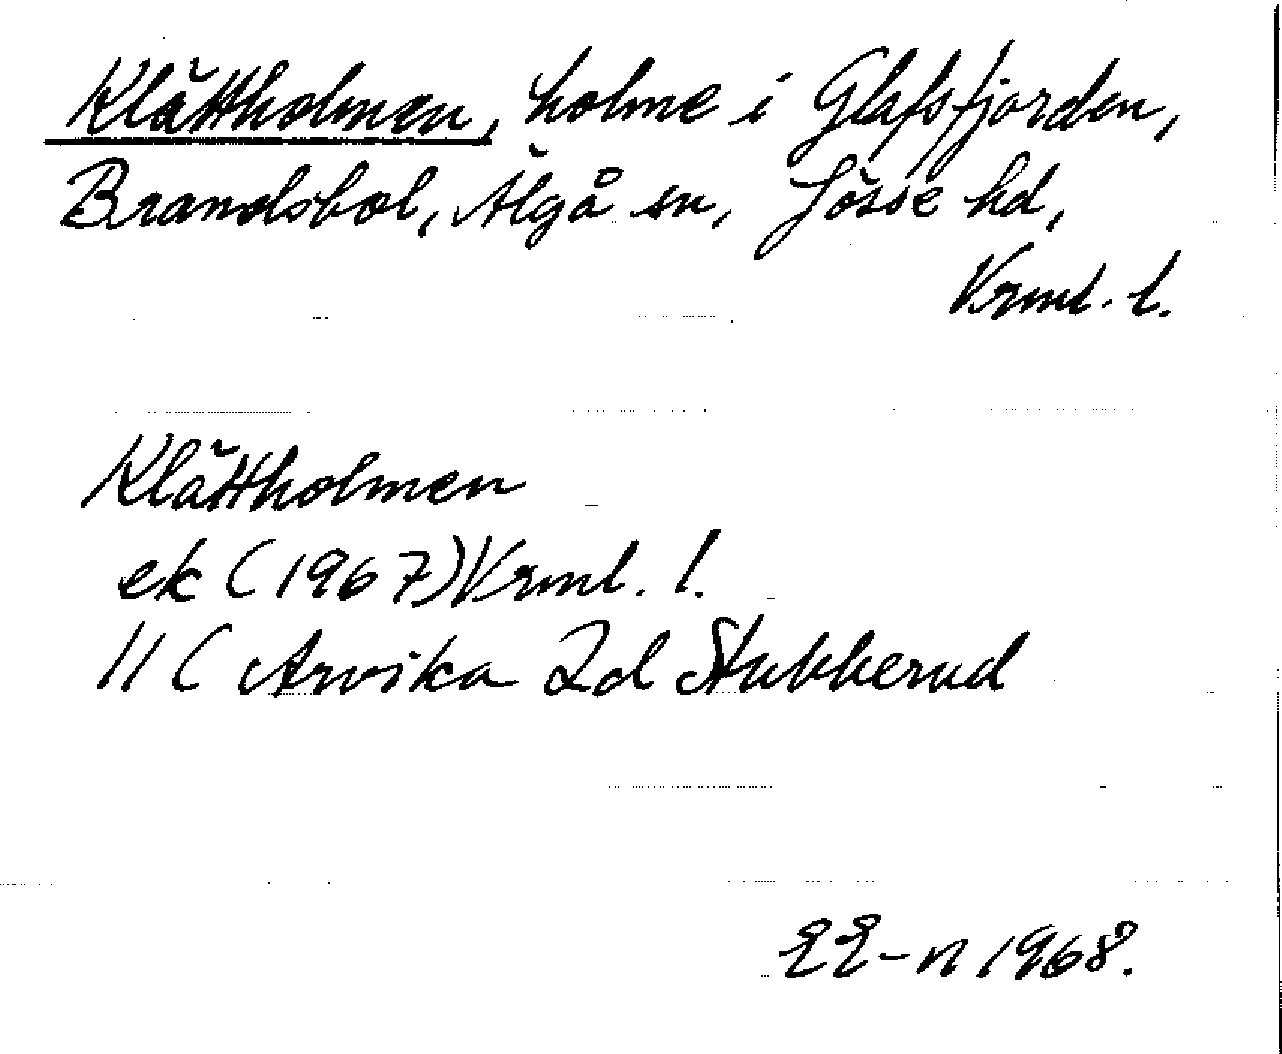 Klättholmen, holme i Glafsfjorden,
Brandsbol, Älgå sn, Jösse hd,
Vrml. l.
Klättholmen
ek (1967) Vrml. l.
11 C Arvika 2d Stubberud
EE-n 1968.